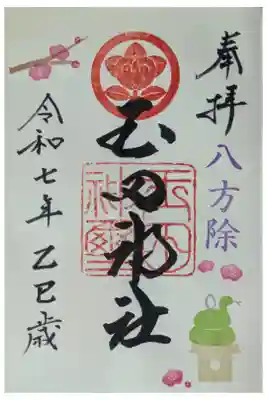 奉拝
八方除
玉田神社
令和七年乙巳歳